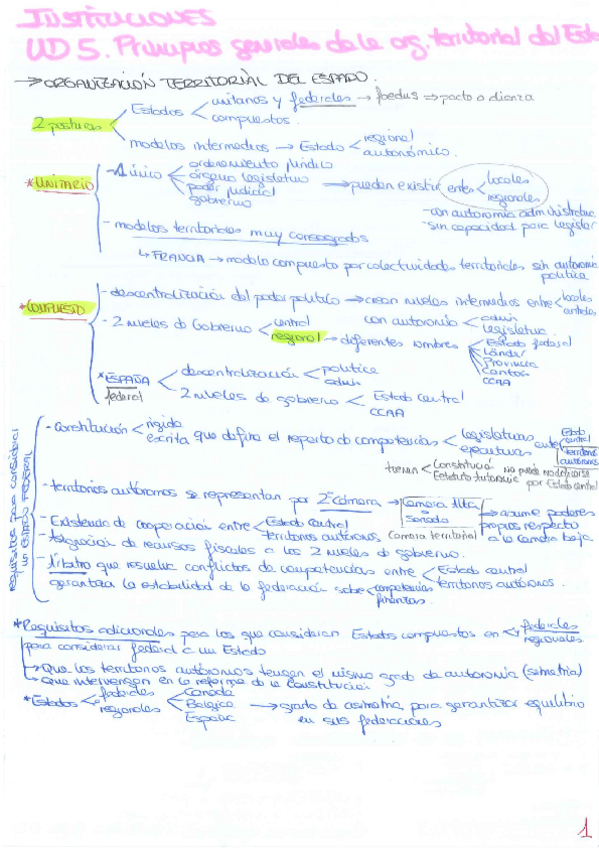 INSTITUCIONES
UD 5. Principios generales de la org. territorial del Esta
→ ORGANIZACIÓN TERRITORIAL DEL ESTADO.
2 posturas
Estados < unitarios y federales → foedus → pacto o alianza
compuestos.
modelos intermedios → Estado < regional
autonómico.
* UNITARIO
- 1 único < ordenamiento jurídico
órgano legislativo
poder judicial
gobierno
→ pueden existir entes < locales
regionales
- con autonomía administrativa
- sin capacidad para legislar
- modelos territoriales muy consagrados
↳ FRANCIA → modelo compuesto por colectividades territoriales sin autonomía
política
* COMPUESTO
- descentralización del poder político → crean niveles intermedios entre < locales
centrales
con autonomía < admin
legislativa.
- 2 niveles de Gobierno < central
regional → diferentes nombres < Estado federal
Länder
Provincia
Cantón
CCAA
* ESPAÑA
federal
descentralización < política
admin
2 niveles de gobierno < Estado Central
CCAA
requisitos para considerar
un ESTADO FEDERAL
- Constitución < rígida
escrita que defina el reparto de competencias < legislativas
ejecutivas
entre Estado
central
territorios
autónomos
tienen < Constitución
Estatuto autonomía
no puede modificarse
por Estado central
- territorios autónomos se representan por 2ª Cámara → Cámara Alta
o Senado
Cámara territorial
→ asume poderes
propios respecto
a la cámara baja
- Existencia de cooperación entre < Estado central
territorios autónomos
- Asignación de recursos fiscales a los 2 niveles de gobierno.
- Árbitro que resuelva conflictos de competencias entre < Estado central
territorios autónomos.
garantiza la estabilidad de la federación sobre < competencias
finanzas.
* Requisitos adicionales para los que consideran Estados compuestos en < federales
regionales.
para considerar federal a un Estado
→ Que los territorios autónomos tengan el mismo grado de autonomía (simetría)
→ Que intervengan en la reforma de la Constitución
* Estados < federales
regionales
< Canadá
Bélgica
España
→ grado de asimetría para garantizar equilibrio
en sus federaciones
1